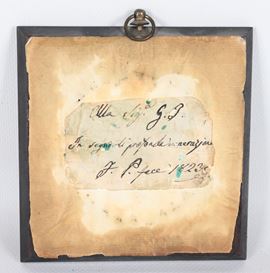 Alla Sig.ª G. J.
In segno di profonda venerazione
J. P. fece 1823